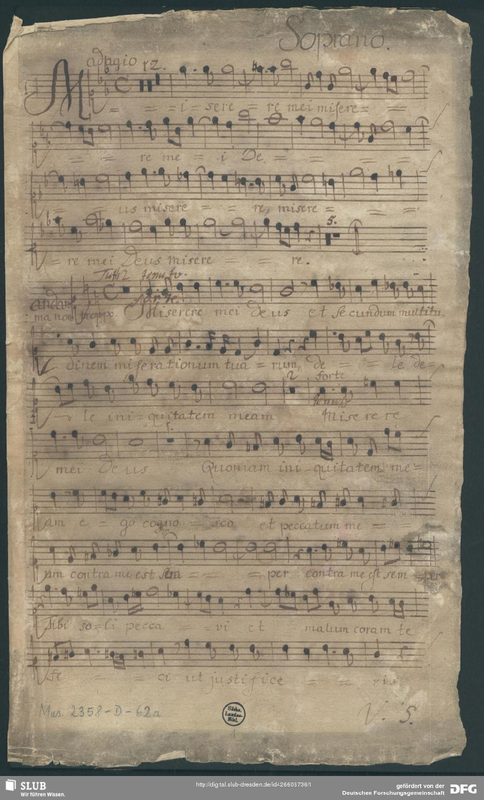 Soprano.
adagio 12.
M = = = i = sere = re mei misere = =
= = re me = i De = = =
us misere = = re, misere = = =
5.
= re mei Deus misere = = re.
Tutti
andante
ma non troppo Miserere mei Deus et secundum multitu
dinem miserationum tua = rum, de = = le de =
2 forte
le ini = quitatem meam Miserere
mei Deus Quoniam ini = quitatem me =
am e = go cogno = sco et peccatum me =
um contra me est sem = = = per contra me est sem = per
tibi so = li pecca = = vi et malum coram te
fe = = = ci ut justifice = = = ris
Mus. 2358-D-62a
V. S.
Sächs. Landes-Bibl.
SLUB
Wir führen Wissen.
http://digital.slub-dresden.de/id426605736/1
gefördert von der
Deutschen Forschungsgemeinschaft
DFG